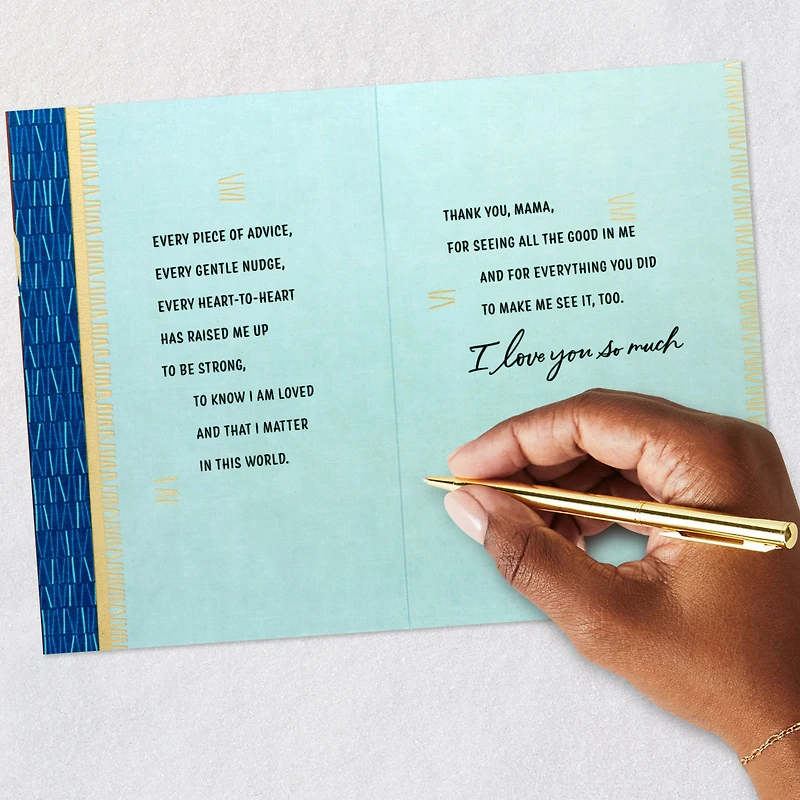 EVERY PIECE OF ADVICE,
EVERY GENTLE NUDGE,
EVERY HEART-TO-HEART
HAS RAISED ME UP
TO BE STRONG,
TO KNOW I AM LOVED
AND THAT I MATTER
IN THIS WORLD.
THANK YOU, MAMA,
FOR SEEING ALL THE GOOD IN ME
AND FOR EVERYTHING YOU DID
TO MAKE ME SEE IT, TOO.
I love you so much